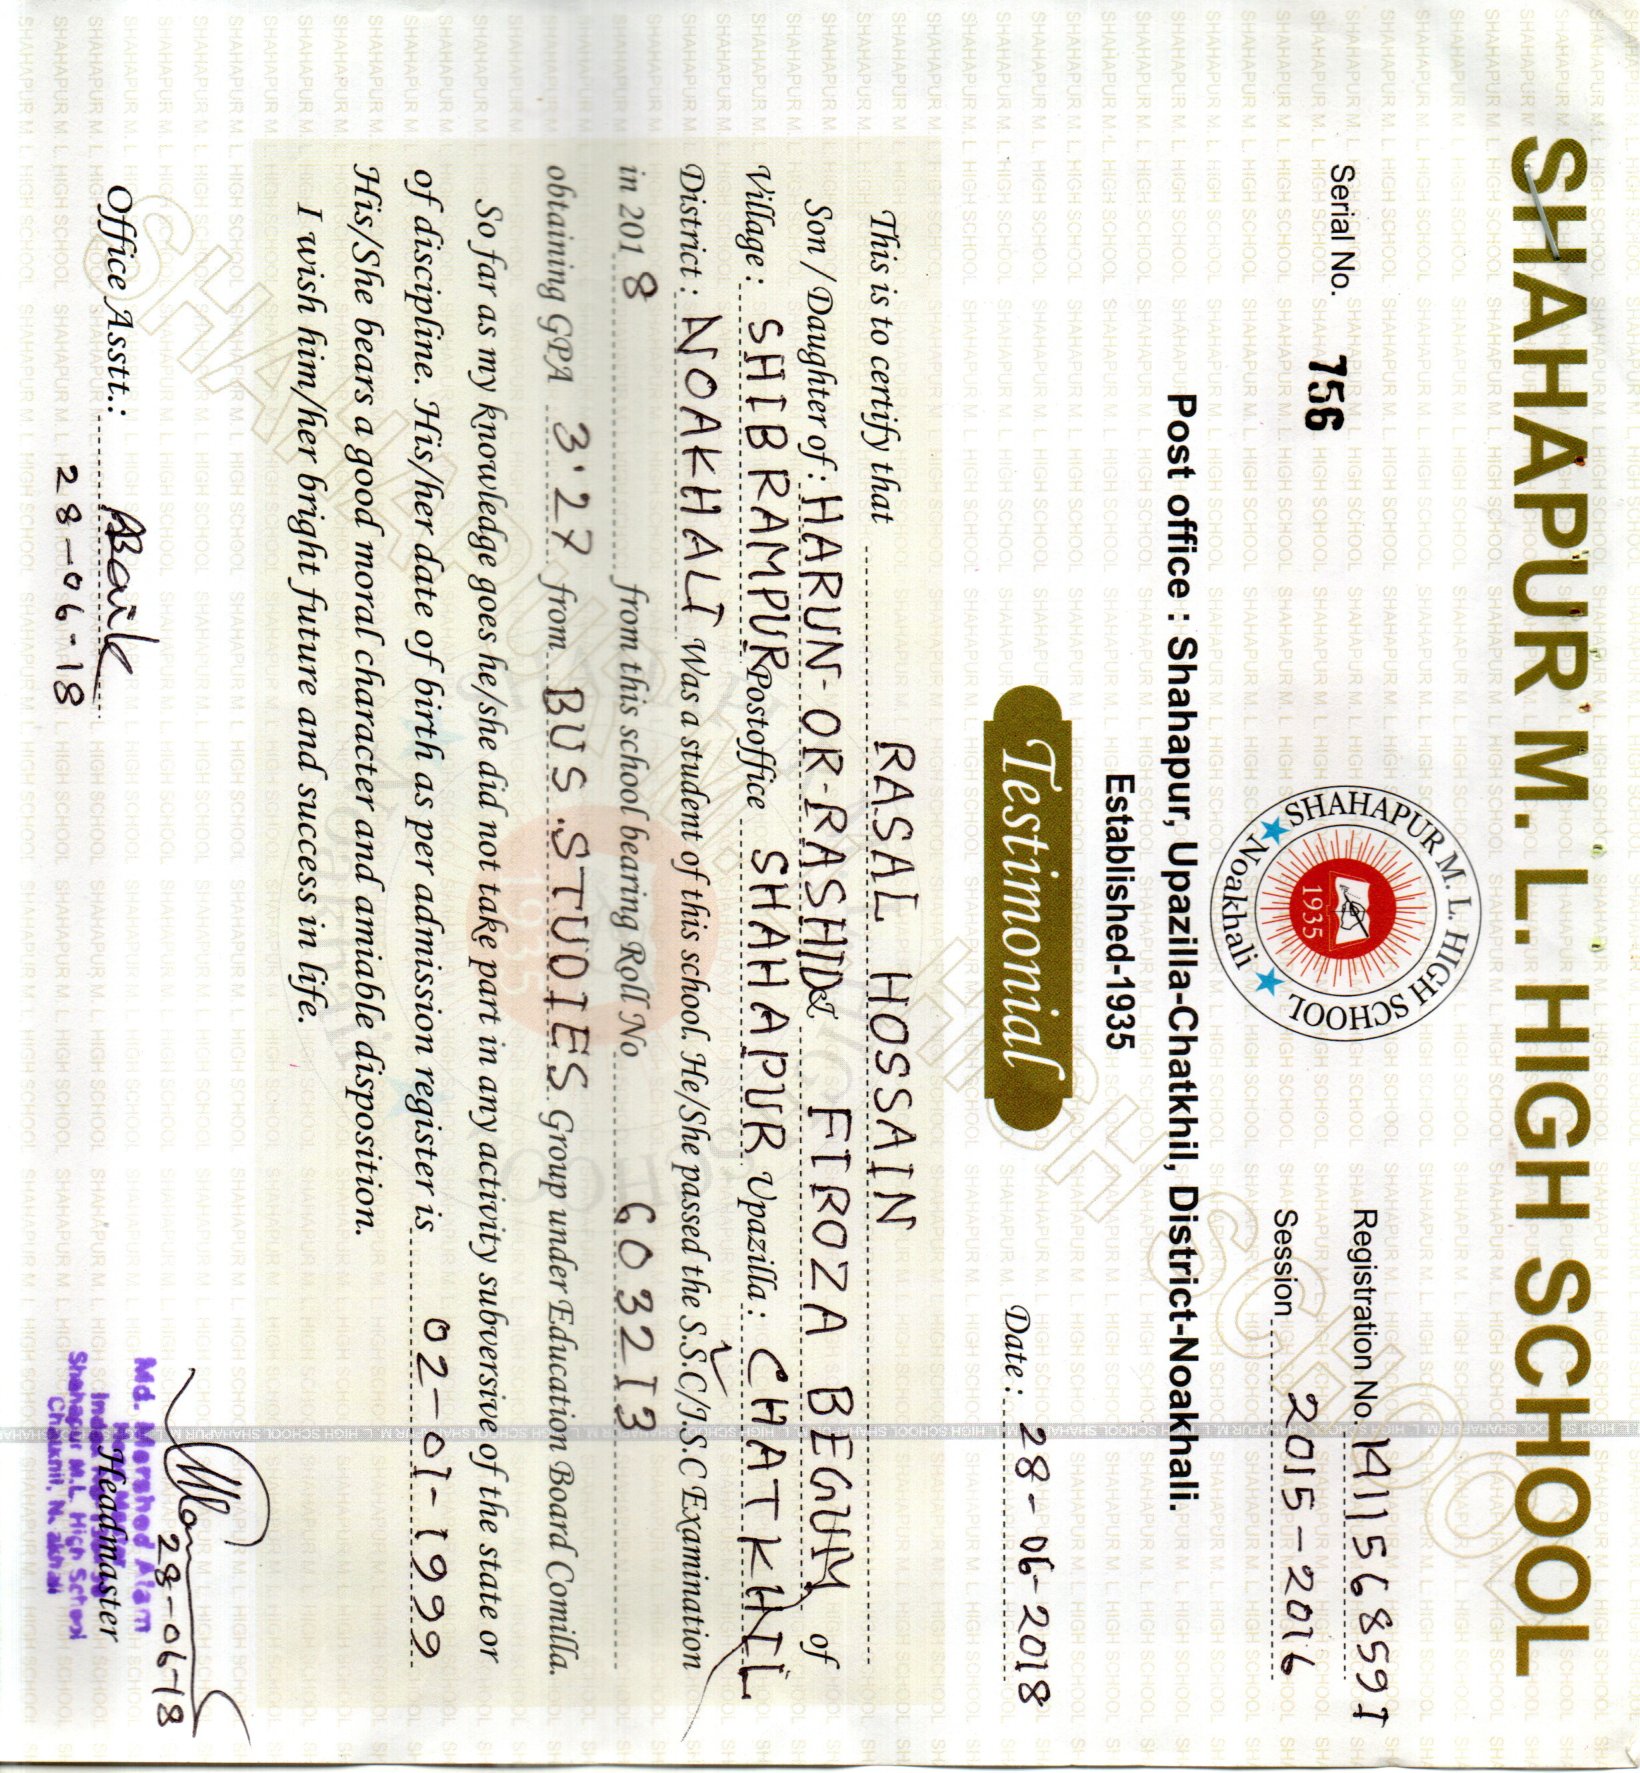 SHAHAPUR M. L. HIGH SCHOOL
SHAHAPUR M. L. HIGH SCHOOL
1935
Noakhali
Serial No. 756
Registration No. 1411568591
Session 2015-2016
Post office : Shahapur, Upazilla-Chatkhil, District-Noakhali.
Established-1935
Testimonial
Date : 28-06-2018
This is to certify that RASAL HOSSAIN
Son / Daughter of : HARUN-OR-RASHID & FIROZA BEGUM of
Village : SHIBRAMPUR Postoffice SHAHAPUR Upazilla : CHATKHIL
District : NOAKHALI Was a student of this school. He/She passed the S.S.C/J.S.C Examination
in 2018 from this school bearing Roll No 603213
obtaining GPA 3.27 from BUS. STUDIES Group under Education Board Comilla.
So far as my knowledge goes he/she did not take part in any activity subversive of the state or
of discipline. His/her date of birth as per admission register is 02-01-1999
His/She bears a good moral character and amiable disposition.
I wish him/her bright future and success in life.
28-06-18
Md. Morshed Alam
Office Asstt.:
Headmaster
Shahapur M.L. High School
28-06-18